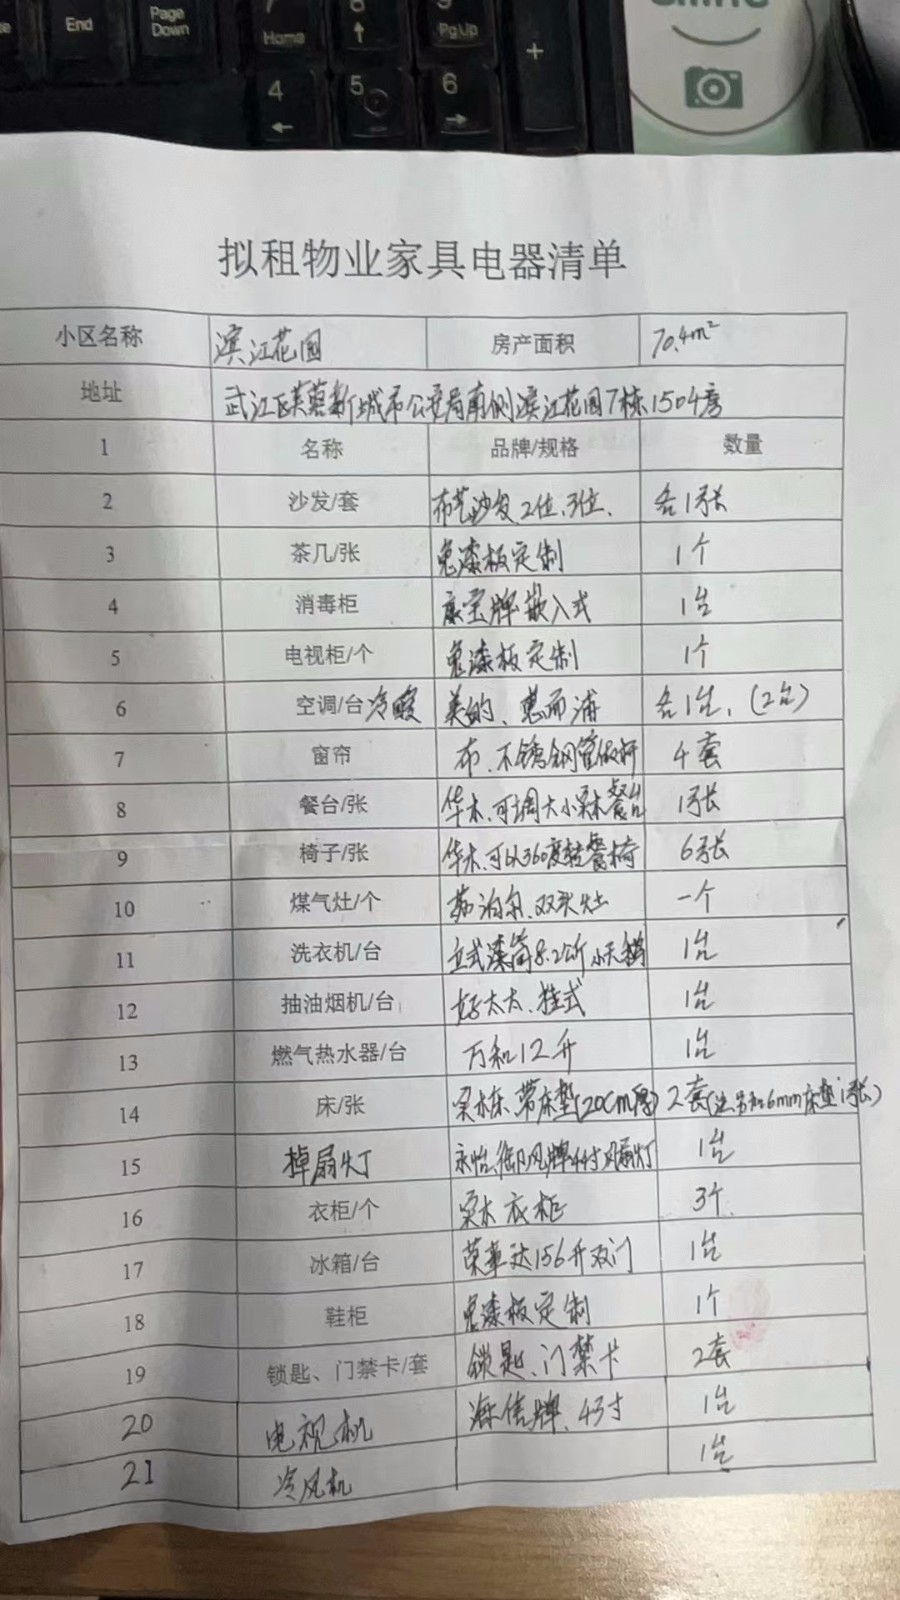 End
Page Down
7 Home
8 ↑
9 PgUp
+
4 ←
5
6 →
拟租物业家具电器清单
小区名称 滨江花园 房产面积 70.4m²
地址 武江区芙蓉新城市公安局南侧滨江花园7栋1504房
1 名称 品牌/规格 数量
2 沙发/套 布艺沙发2位、3位、 各1张
3 茶几/张 免漆板定制 1个
4 消毒柜 康宝牌嵌入式 1台
5 电视柜/个 免漆板定制 1个
6 空调/台冷暖 美的、惠而浦 各1台、(2台)
7 窗帘 布、不锈钢管做杆 4套
8 餐台/张 华木、可调大小实木餐台 1张
9 椅子/张 华木、可以360度转餐椅 6张
10 煤气灶/个 双头灶 一个
11 洗衣机/台 立式滚筒8.2公斤小天鹅 1台
12 抽油烟机/台 好太太、挂式 1台
13 燃气热水器/台 万和12升 1台
14 床/张 实木床、带床垫(20cm厚) 2套(6mm床垫1张)
15 掉扇灯 永怡、御风牌44寸风扇灯 1台
16 衣柜/个 实木衣柜 3个
17 冰箱/台 荣事达156升双门 1台
18 鞋柜 免漆板定制 1个
19 锁匙、门禁卡/套 锁匙、门禁卡 2套
20 电视机 海信牌、43寸 1台
21 冷风机 1台